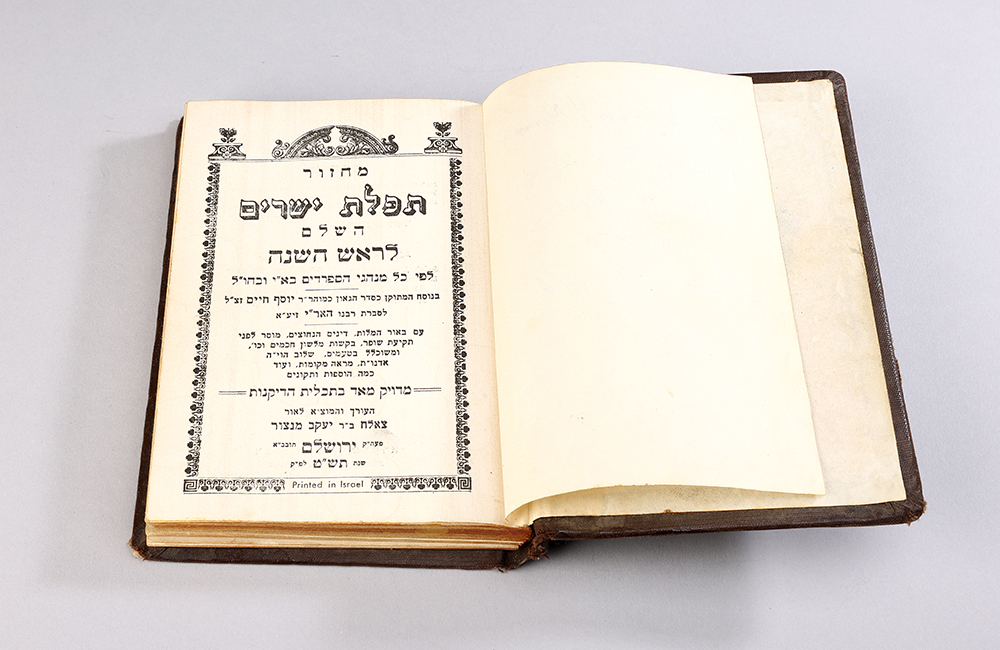 מחזור
תפלת ישרים
השלם
לראש השנה
לפי כל מנהגי הספרדים בא״י ובחו״ל
בנוסח המתוקן כסדר הגאון כמוהר״ר יוסף חיים זצ״ל
לסברת רבנו האר״י זיע״א
עם באור המלות, דינים הנחוצים, מוסר לפני
תקיעת שופר, בקשות מלשון חכמים וכו׳,
ומשוכלל בטעמים, שלוב הוי״ה
אדנו״ת, מראה מקומות, ועוד
כמה הוספות ותקונים
מדויק מאד בתכלית הדיקנות
העורך והמוצ״א לאור
צאלח ב״ר יעקב מנצור
פעה״ק ירושלם תובב״א
שנת תש״ט לפ״ק
Printed in Israel